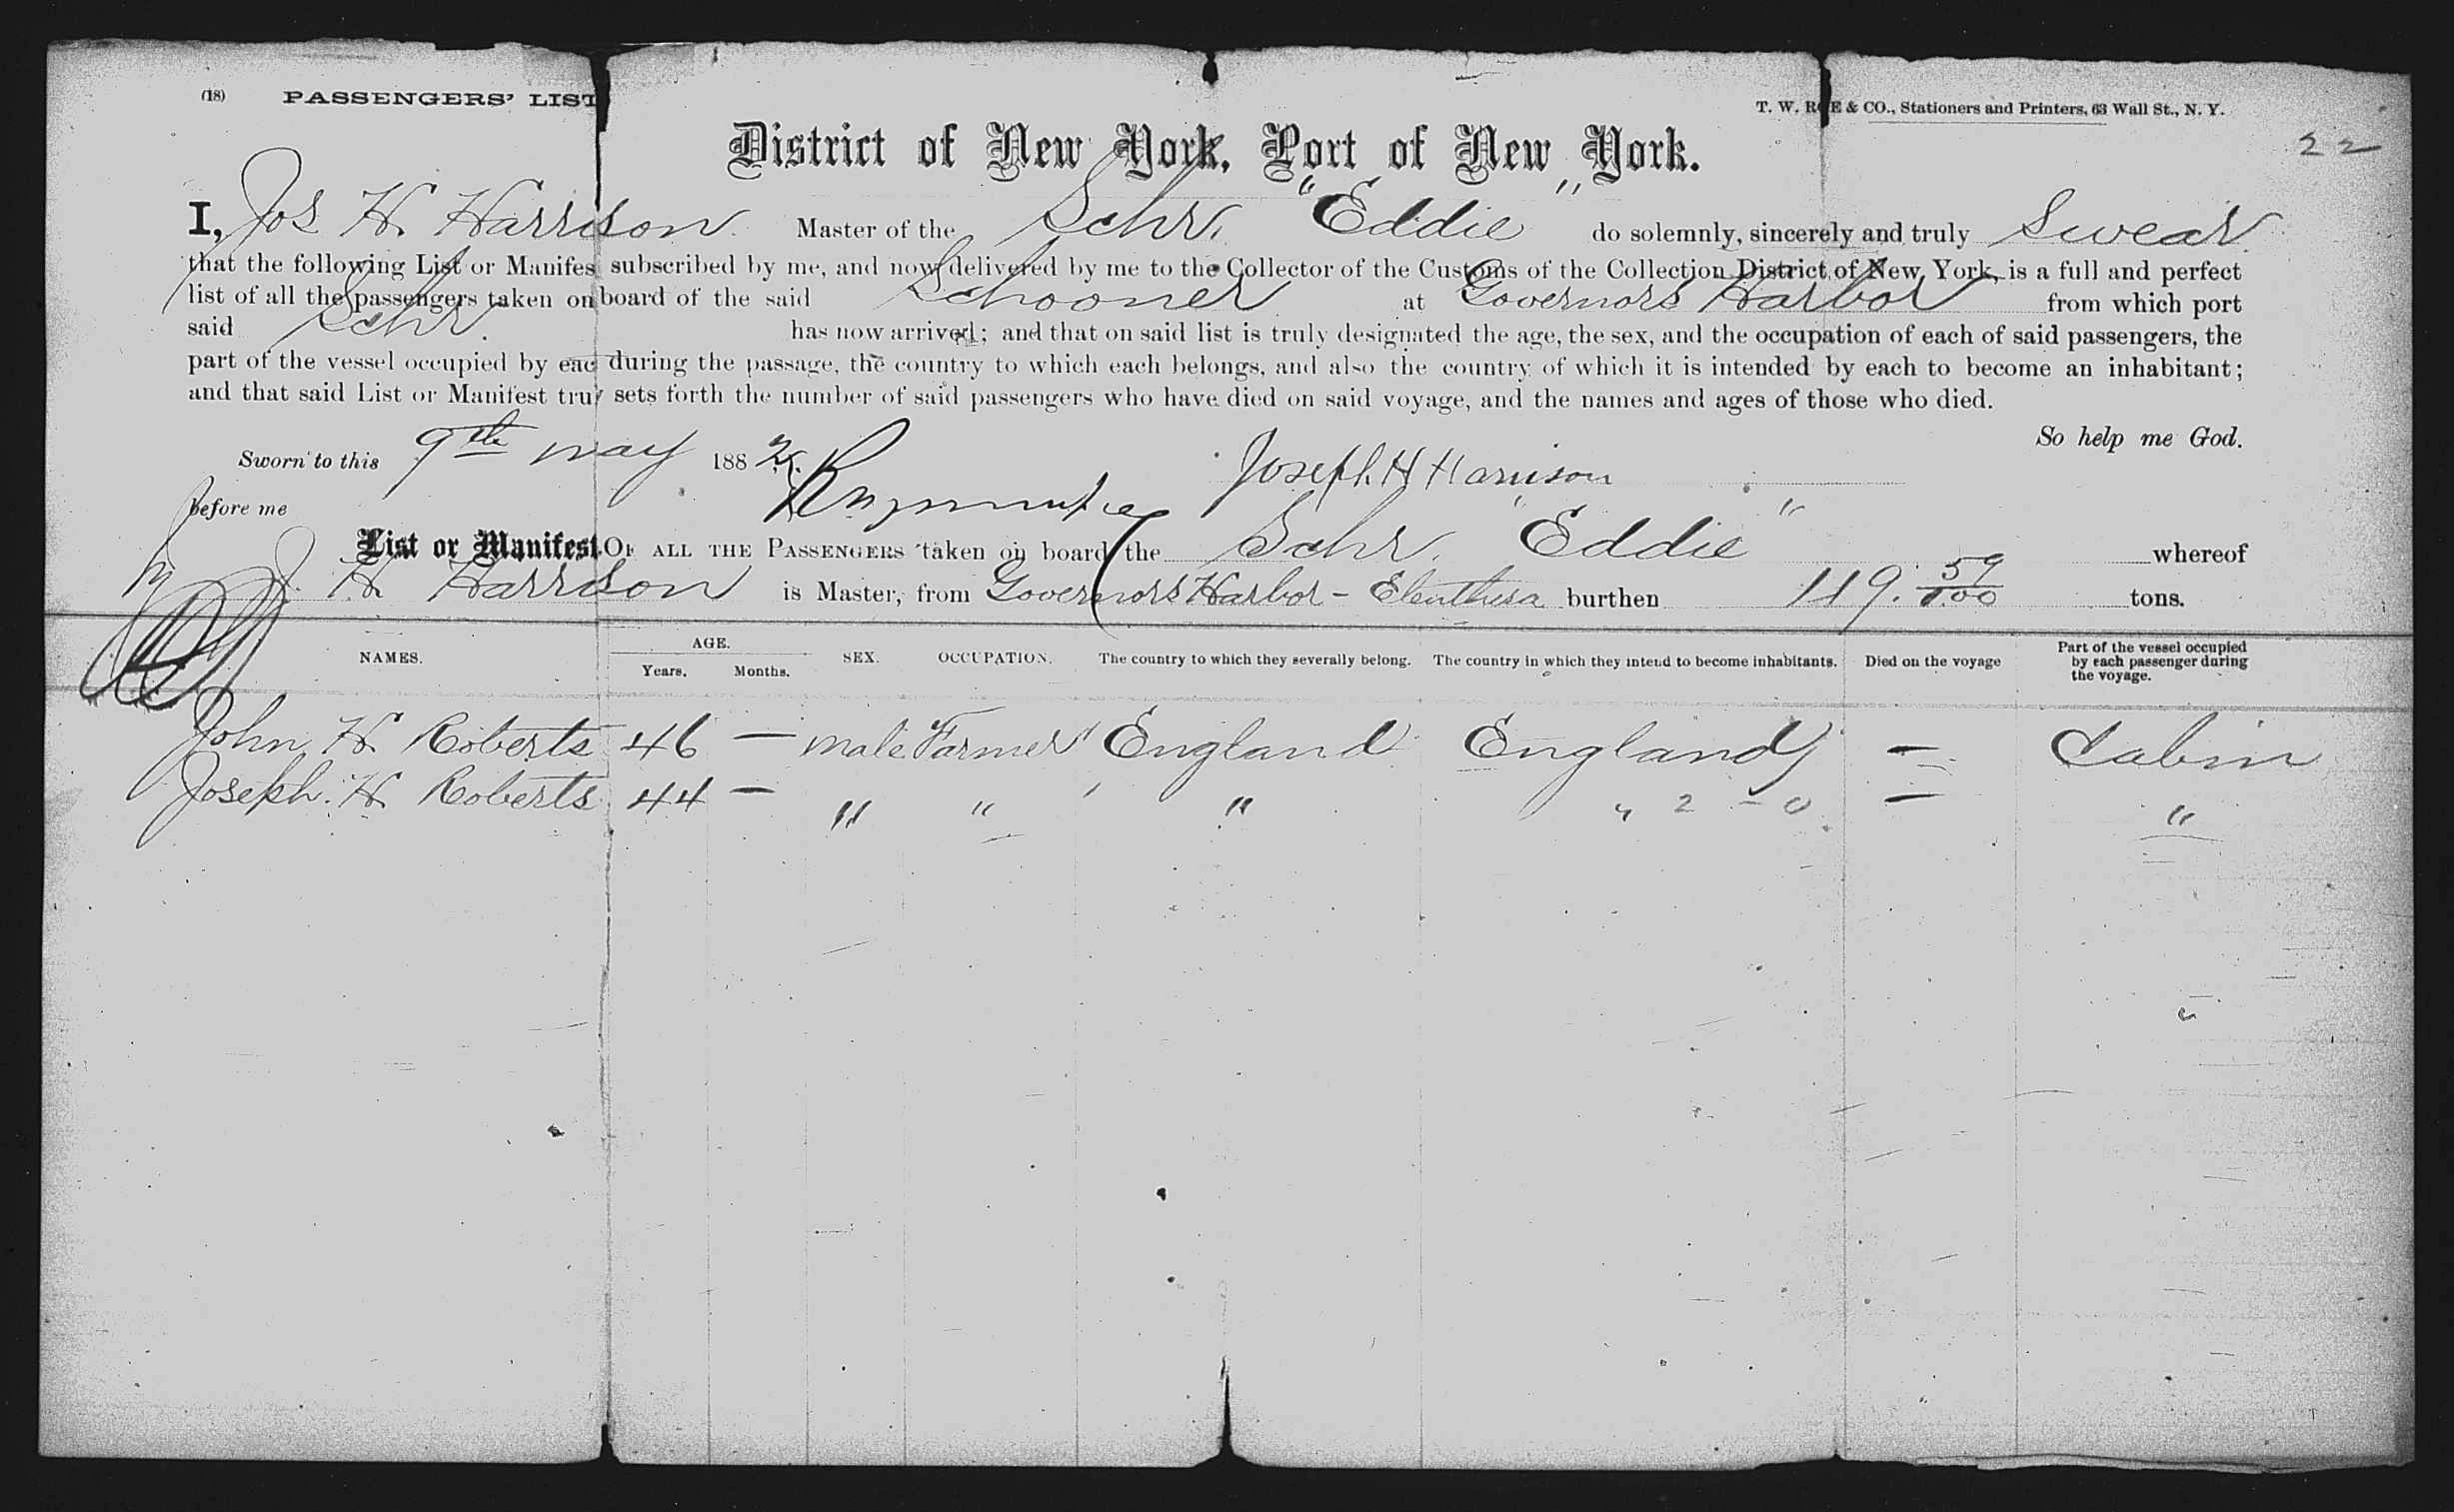 (18) PASSENGERS' LIST
T. W. ROE & CO., Stationers and Printers, 63 Wall St., N. Y.
District of New York, Port of New York.
22
I, Jos H. Harrison Master of the Schr. "Eddie" do solemnly, sincerely and truly Swear
that the following List or Manifes subscribed by me, and now delivered by me to the Collector of the Customs of the Collection District of New York, is a full and perfect
list of all the passengers taken on board of the said Schooner at Governors Harbor from which port
said Schr. has now arrived; and that on said list is truly designated the age, the sex, and the occupation of each of said passengers, the
part of the vessel occupied by eac during the passage, the country to which each belongs, and also the country of which it is intended by each to become an inhabitant;
and that said List or Manifest truy sets forth the number of said passengers who have died on said voyage, and the names and ages of those who died.
So help me God.
Sworn to this 9th May 188
Joseph H Harrison
before me
List or Manifest OF ALL THE PASSENGERS taken on board the Schr. "Eddie" whereof
J. H Harrison is Master, from Governors Harbor - Eleuthera burthen 119. 59/100 tons.
NAMES. AGE. Years. Months. SEX. OCCUPATION. The country to which they severally belong. The country in which they intend to become inhabitants. Died on the voyage Part of the vessel occupied by each passenger during the voyage.
John H Roberts 46 — male Farmer England England — Cabin
Joseph. H Roberts 44 — " " " " 2 - 0 — "